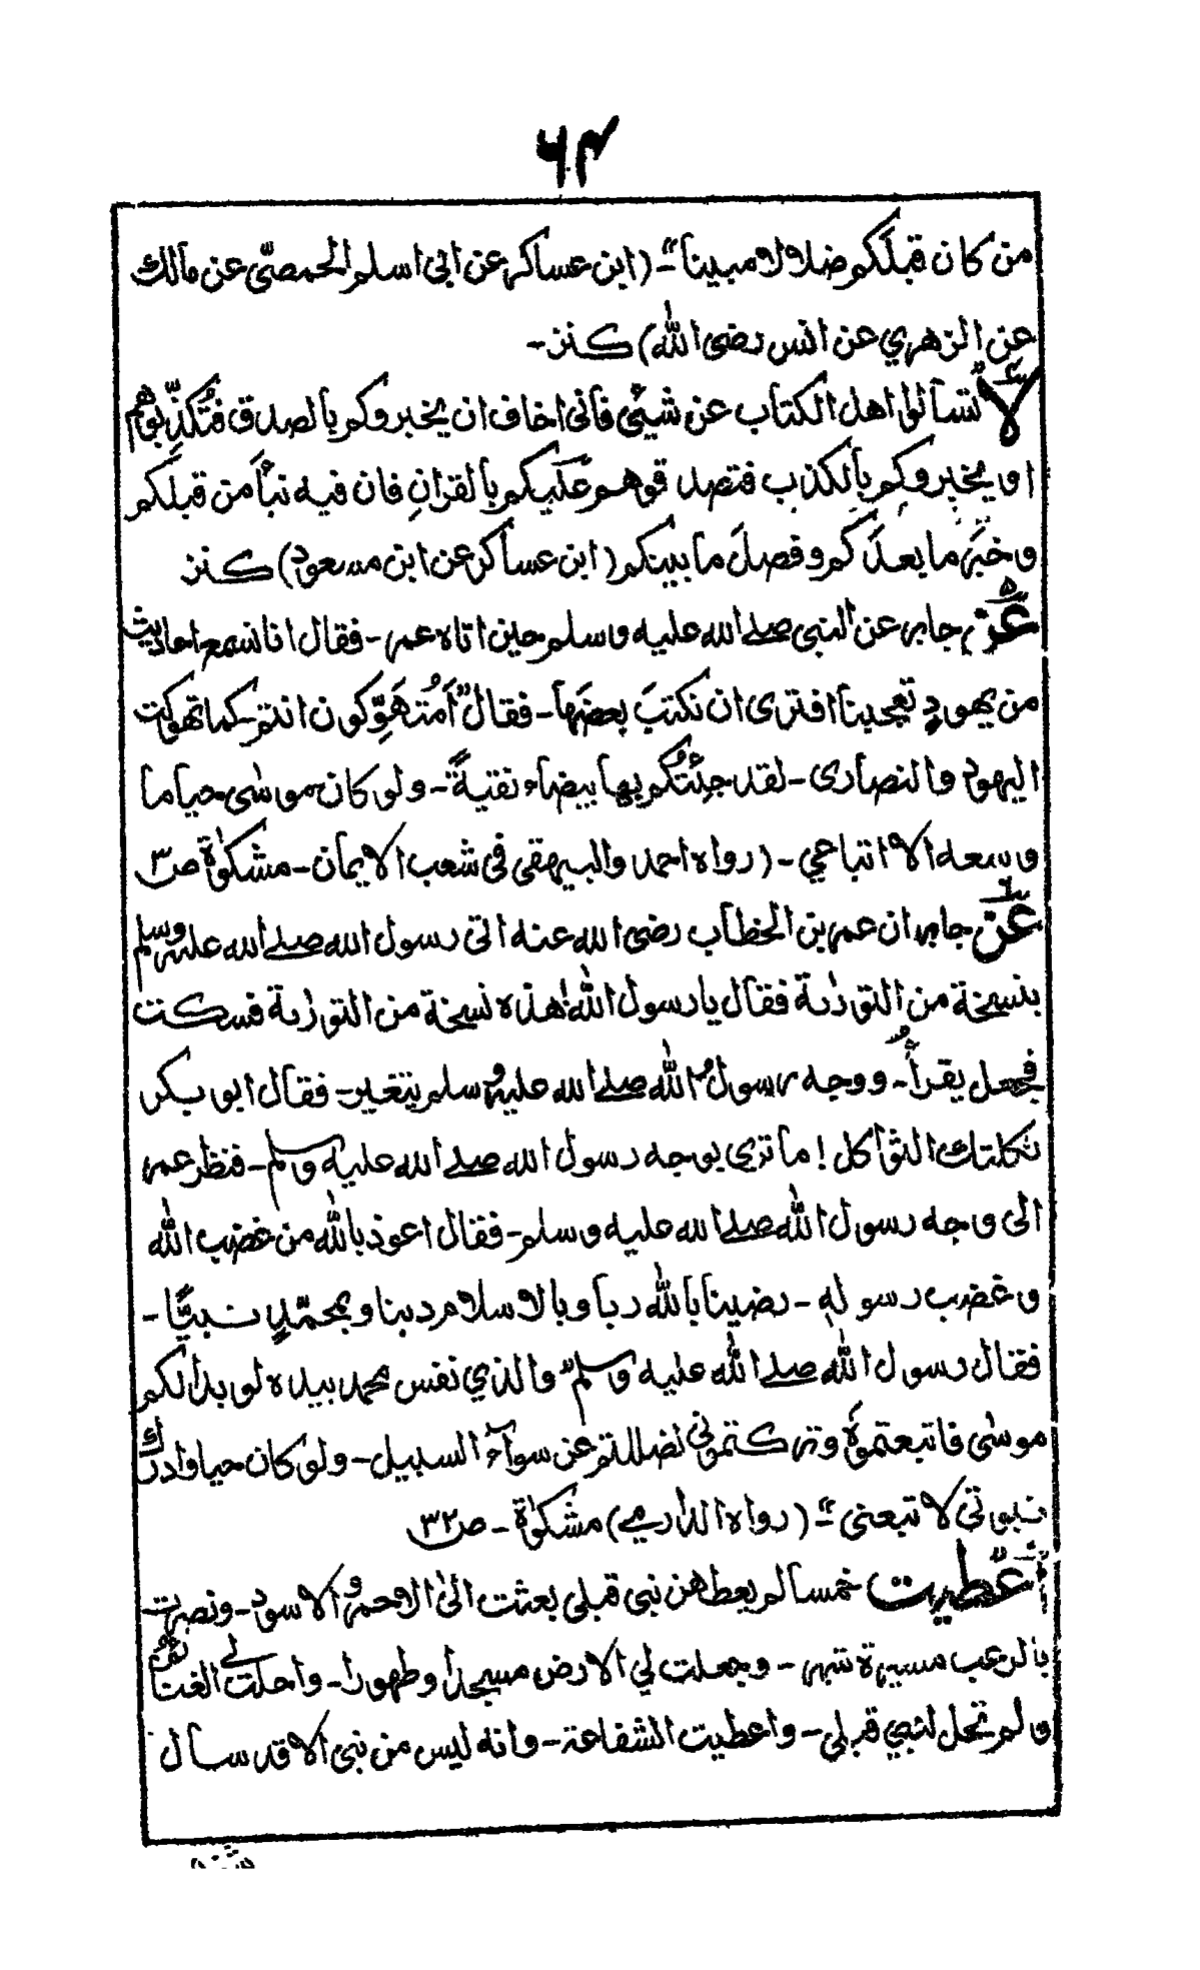 ۶۴
من كان قبلكم ضلالا مبينا"۔ (ابن عساكر عن ابى اسلم الحمصّى عن مالك
عن الزهري عن انس رضى الله) كنز۔
۴ لا تسألوا اهل الكتاب عن شيئى فانى اخاف ان يخبروكم بالصدق فتُكذِّبوهم
او يخبروكم بالكذب فتصدقوهم عَلَيكم بالقرانِ فان فيه نبأ من قبلكم
وخبَر ما بعدَكم وفصلَ ما بينكم (ابن عساكر عن ابن مسعود) كنز
۵ عن جابر عن النبى صلے الله عليه وسلم حين اتاه عمر۔ فقال انا نسمع احاديث
من يهودٍ تعجبنا افترى ان نكتبَ بعضَها۔ فقال "اَمُتَهَوِّكون انتم۔ كما تهوكت
اليهود والنصارى۔ لقد جِئتُكم بها بيضاء نقيةً۔ ولو كان موسٰى حيا ما
وسعه الا اتباعي۔ (رواه احمد والبيهقى فى شعب الايمان۔ مشكوٰة ص۳
۶ عن جابر ان عمر بن الخطاب رضى الله عنه اتى رسول الله صلے الله عليه وسلم
بنسخة من التورٰىة فقال يا رسول الله! هذه نسخة من التورٰىة فسكت
فجعل يقرأُ۔ ووجه رسول الله صلے الله عليه وسلم يتغير۔ فقال ابو بكر
ثكلتك الثواكل! ما ترى بوجه رسول الله صلے الله عليه وسلم۔ فنظر عمر
الى وجه رسول الله صلے الله عليه وسلم۔ فقال اعوذ بالله من غضب الله
وغضب رسولهٖ۔ رضينا بالله ربا وبالاسلام دينا وبمحمّدٍ نبيًّا۔
فقال رسول الله صلے الله عليه وسلم" والذي نفس محمد بيده لو بدا لكم
موسٰى فاتبعتموه وتركتمونى لضللتم عن سوآء السبيل۔ ولو كان حيا وادرك
نبوتى لاتبعنى"۔ (رواه الدارمے) مشكوٰة۔ ص۳۲
اُعطيت خمسا لم يعطهن نبى قبلى بعثت الى الاحمر والاسود۔ ونصرت
بالرعب مسيرة شهر۔ وجعلت لي الارض مسجدا وطهورا۔ واحلت لے الغنائم
ولم تحل لنبي قبلي۔ واعطيت الشفاعة۔ وانه ليس من نبى الا قد سأل